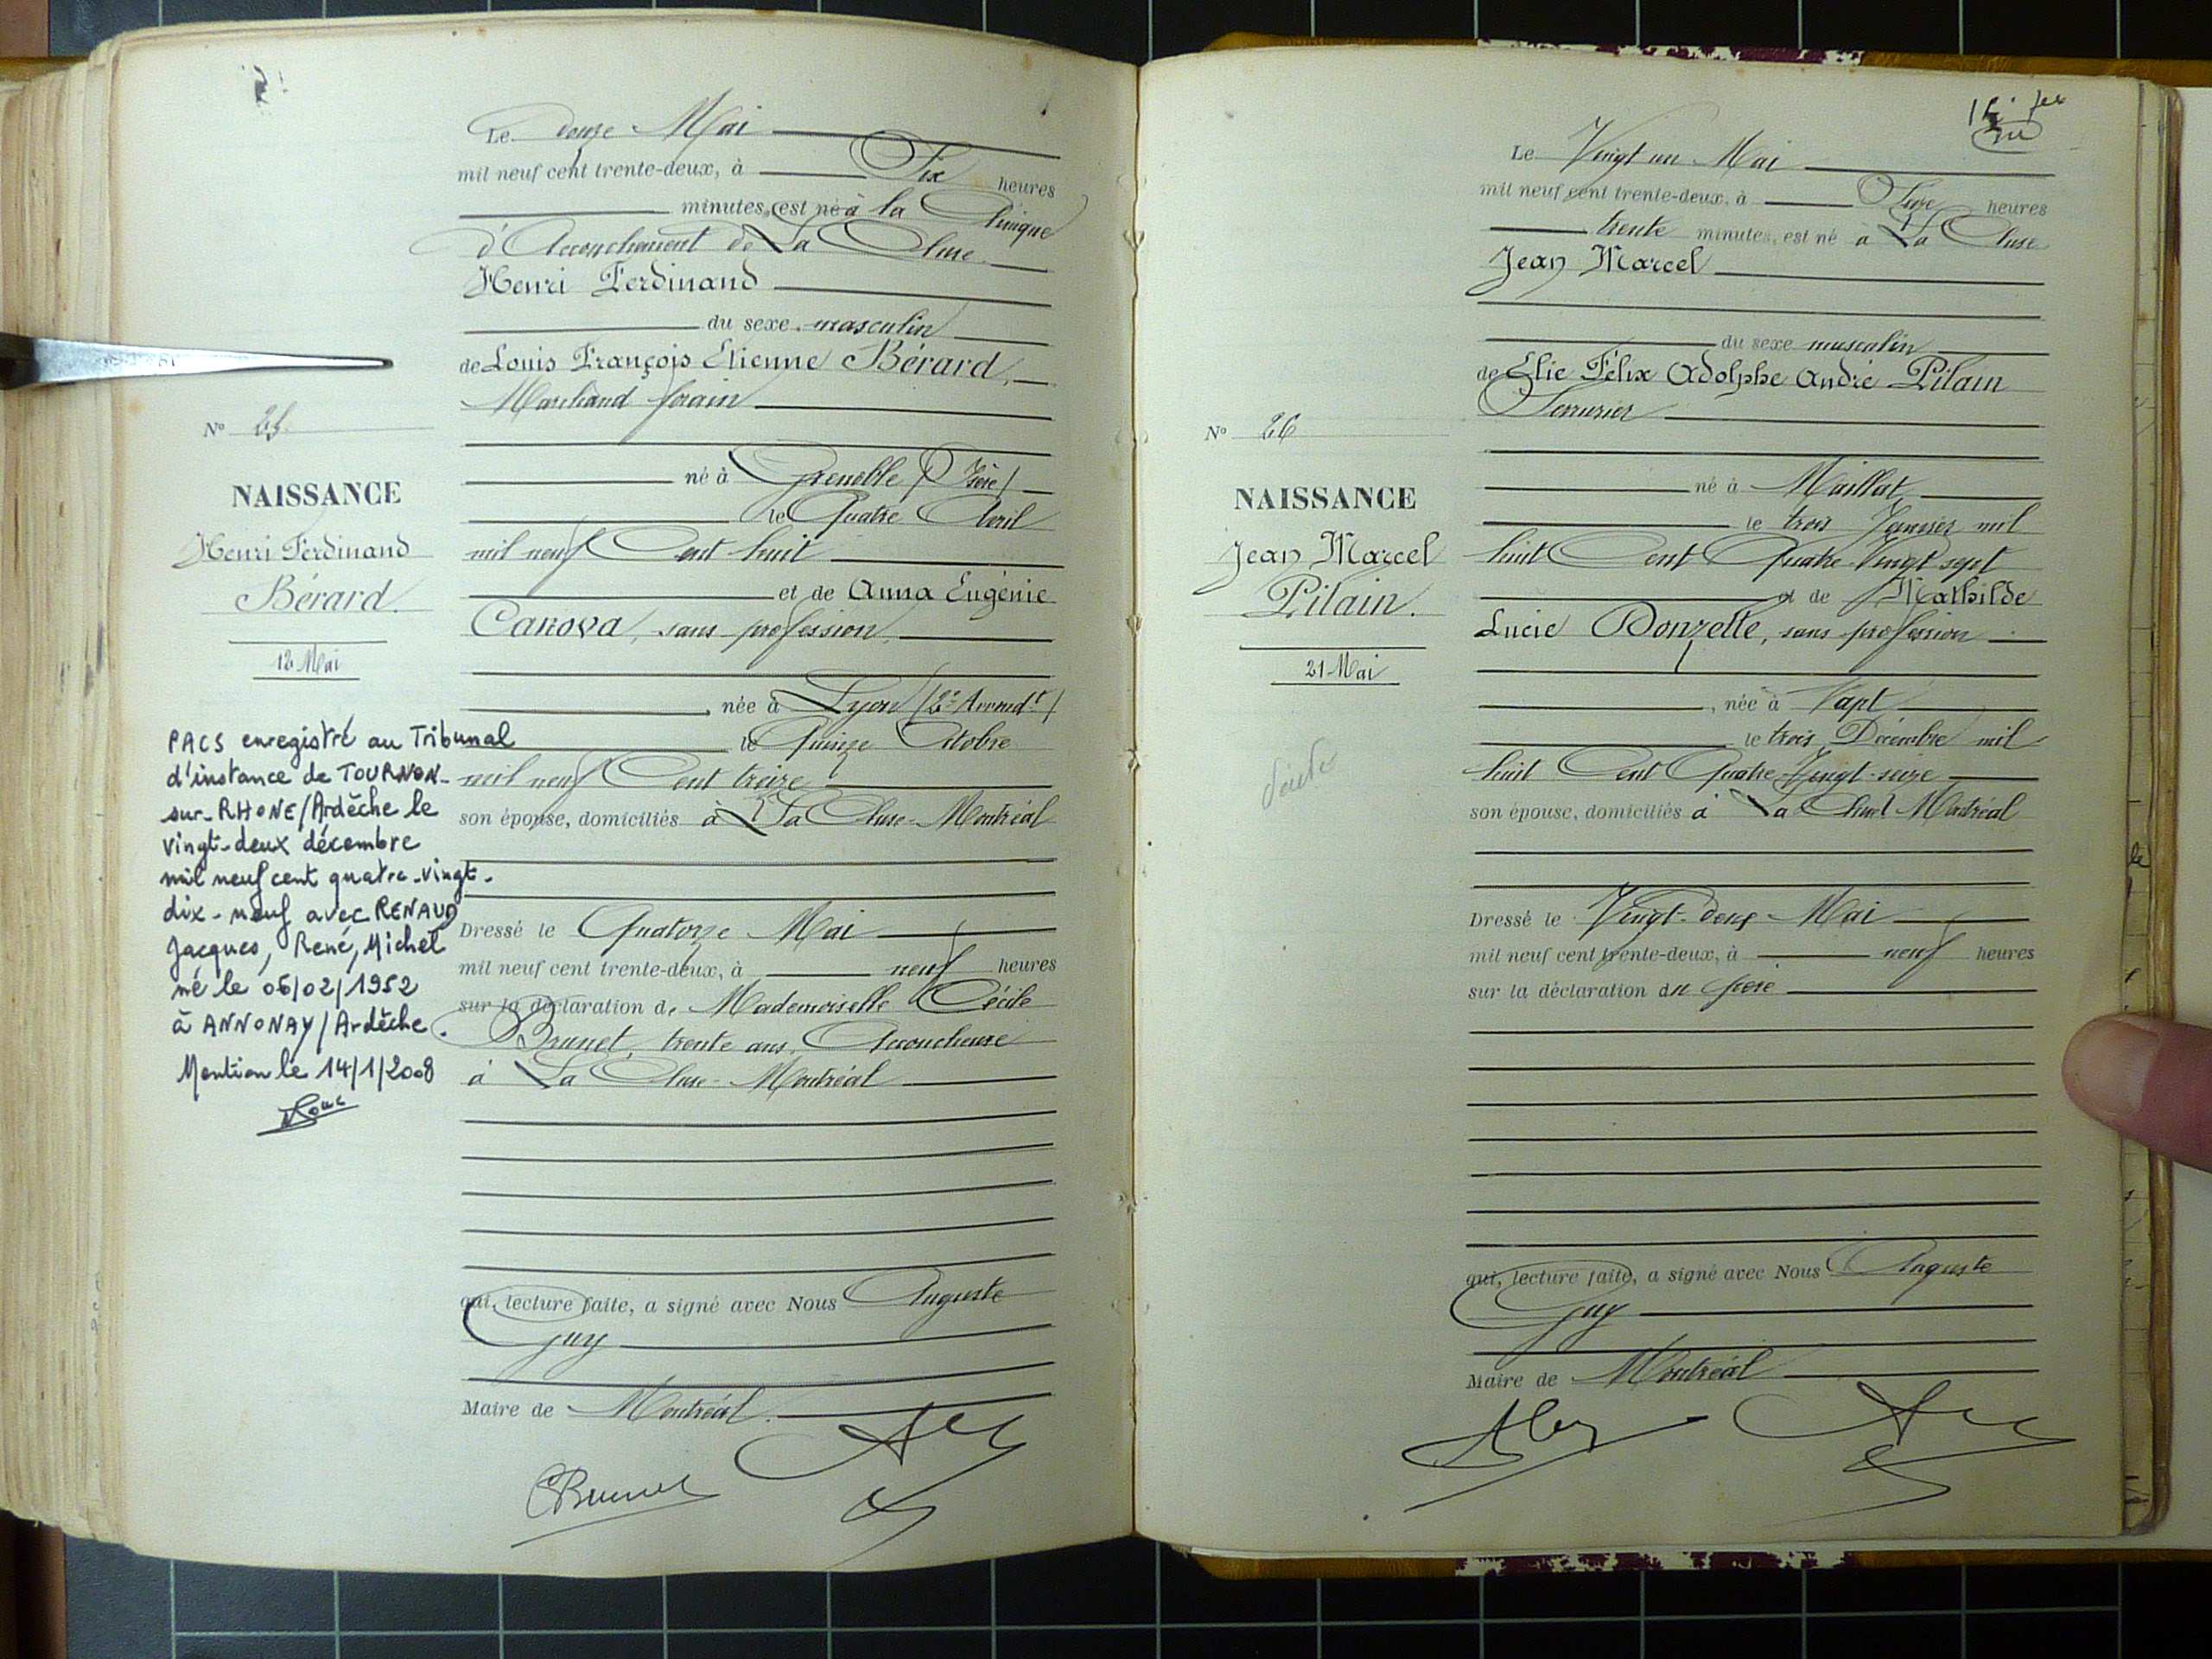 Le douze Mai
mil neuf cent trente-deux, à Six heures
minutes, est né à la Clinique
d'Accouchement de La Cluse
Henri Ferdinand
du sexe masculin
de Louis François Etienne Bérard,
Marchand forain
né à Grenoble (Isère)
le Quatre Avril
mil neuf Cent huit
et de Anna Eugénie
Canova, sans profession,
, née à Lyon (2e Arrondt)
le Quinze Octobre
mil neuf Cent treize
son épouse, domiciliés à La Cluse-Montréal
Dressé le Quatorze Mai
mil neuf cent trente-deux, à neuf heures
sur la déclaration de Mademoiselle Cécile
Brunet, trente ans, Accoucheuse
à La Cluse-Montréal
qui, lecture faite, a signé avec Nous Auguste
Guy
Maire de Montréal.
CBrunet
N° 25
NAISSANCE
Henri Ferdinand
Bérard.
12 Mai
PACS enregistré au Tribunal
d'instance de TOURNON-
sur-RHONE/Ardèche le
vingt-deux décembre
mil neuf cent quatre-vingt-
dix-neuf avec RENAUD
Jacques, René, Michel
né le 06/02/1952
à ANNONAY/Ardèche.
Mention le 14/1/2008
Le Vingt un Mai
mil neuf cent trente-deux, à heures
trente minutes, est né à La Cluse
Jean Marcel
du sexe masculin
de Elie Félix Adolphe André Pilain
Serrurier
né à Maillat,
le trois Janvier mil
huit Cent Quatre-Vingt sept
et de Mathilde
Lucie Donzelle, sans profession
, née à
le trois Décembre mil
huit Cent Quatre-Vingt-seize
son épouse, domiciliés à La Cluse Montréal
Dressé le Vingt-deux Mai
mil neuf cent trente-deux, à neuf heures
sur la déclaration du père
qui, lecture faite, a signé avec Nous Auguste
Guy
Maire de Montréal
N° 26
NAISSANCE
Jean Marcel
Pilain.
21 Mai